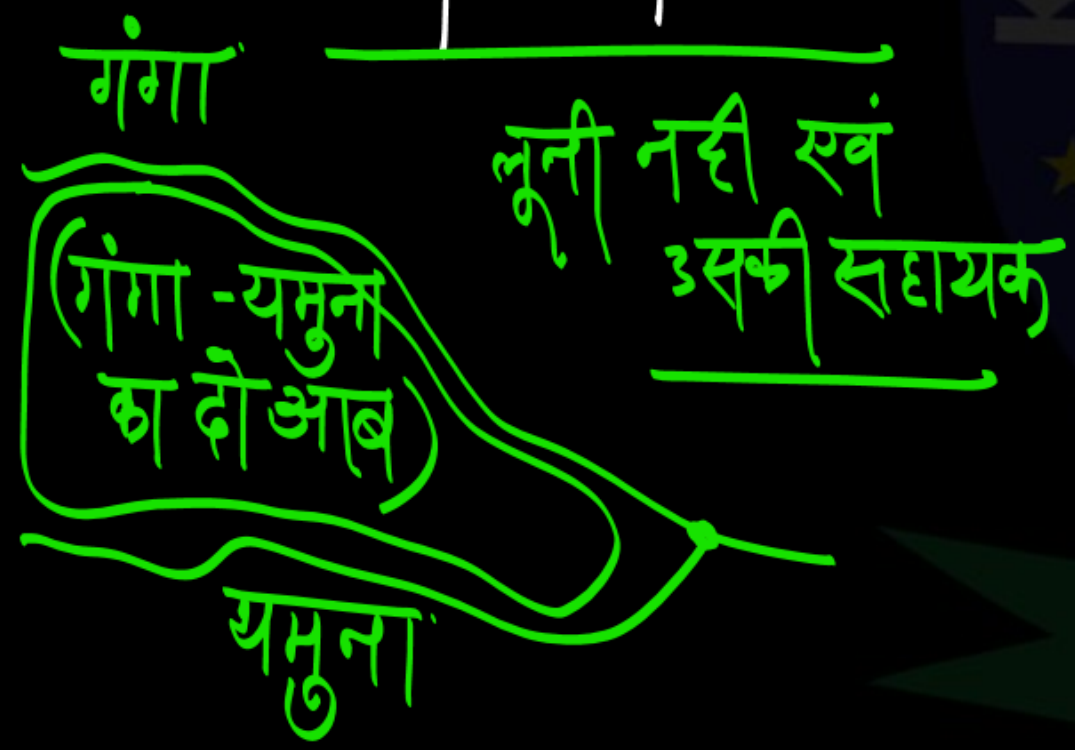 गंगा
लूनी नदी एवं
उसकी सहायक
(गंगा -यमुना
का दोआब)
यमुना